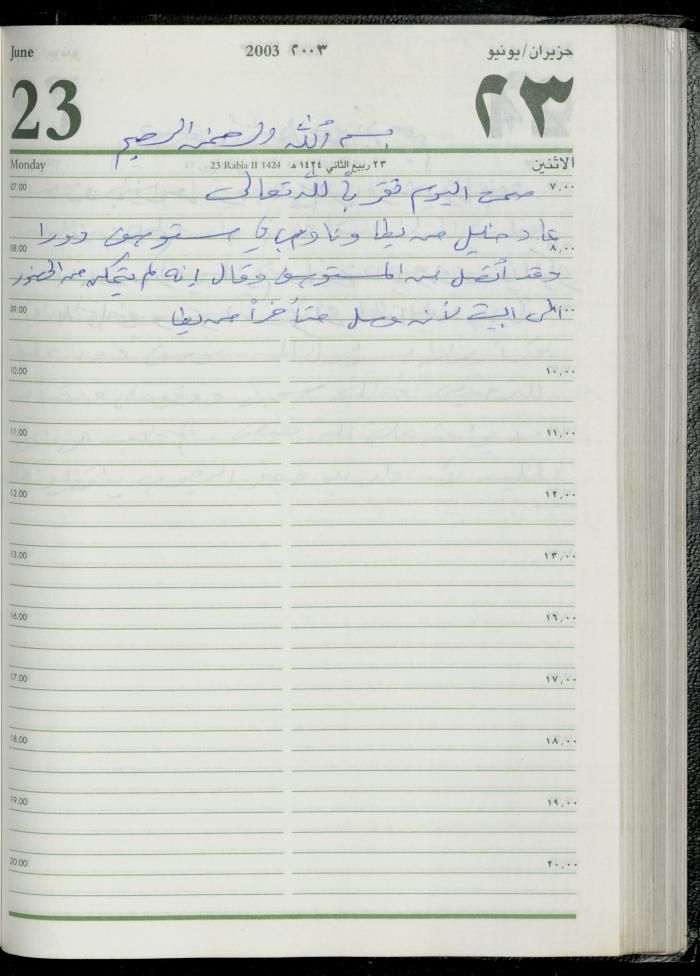 June 2003 ٢٠٠٣ حزيران/يونيو
23 ٢٣
بسم الله الرحمن الرحيم
Monday 23 Rabia II 1424 ٢٣ ربيع الثاني ١٤٢٤ هـ الاثنين
07.00 صمت اليوم تقرباً لله تعالى ٧,٠٠
عاد خليل من يطا ونام في مستوصف دورا
08.00 ٨,٠٠
وقد اتصل من المستوصف وقال إنه لم يتمكن من الحضور
09.00 الى البيت لأنه وصل متأخراً من يطا ٩,٠٠
10.00 ١٠,٠٠
11.00 ١١,٠٠
12.00 ١٢,٠٠
13.00 ١٣,٠٠
16.00 ١٦,٠٠
17.00 ١٧,٠٠
18.00 ١٨,٠٠
19.00 ١٩,٠٠
20.00 ٢٠,٠٠